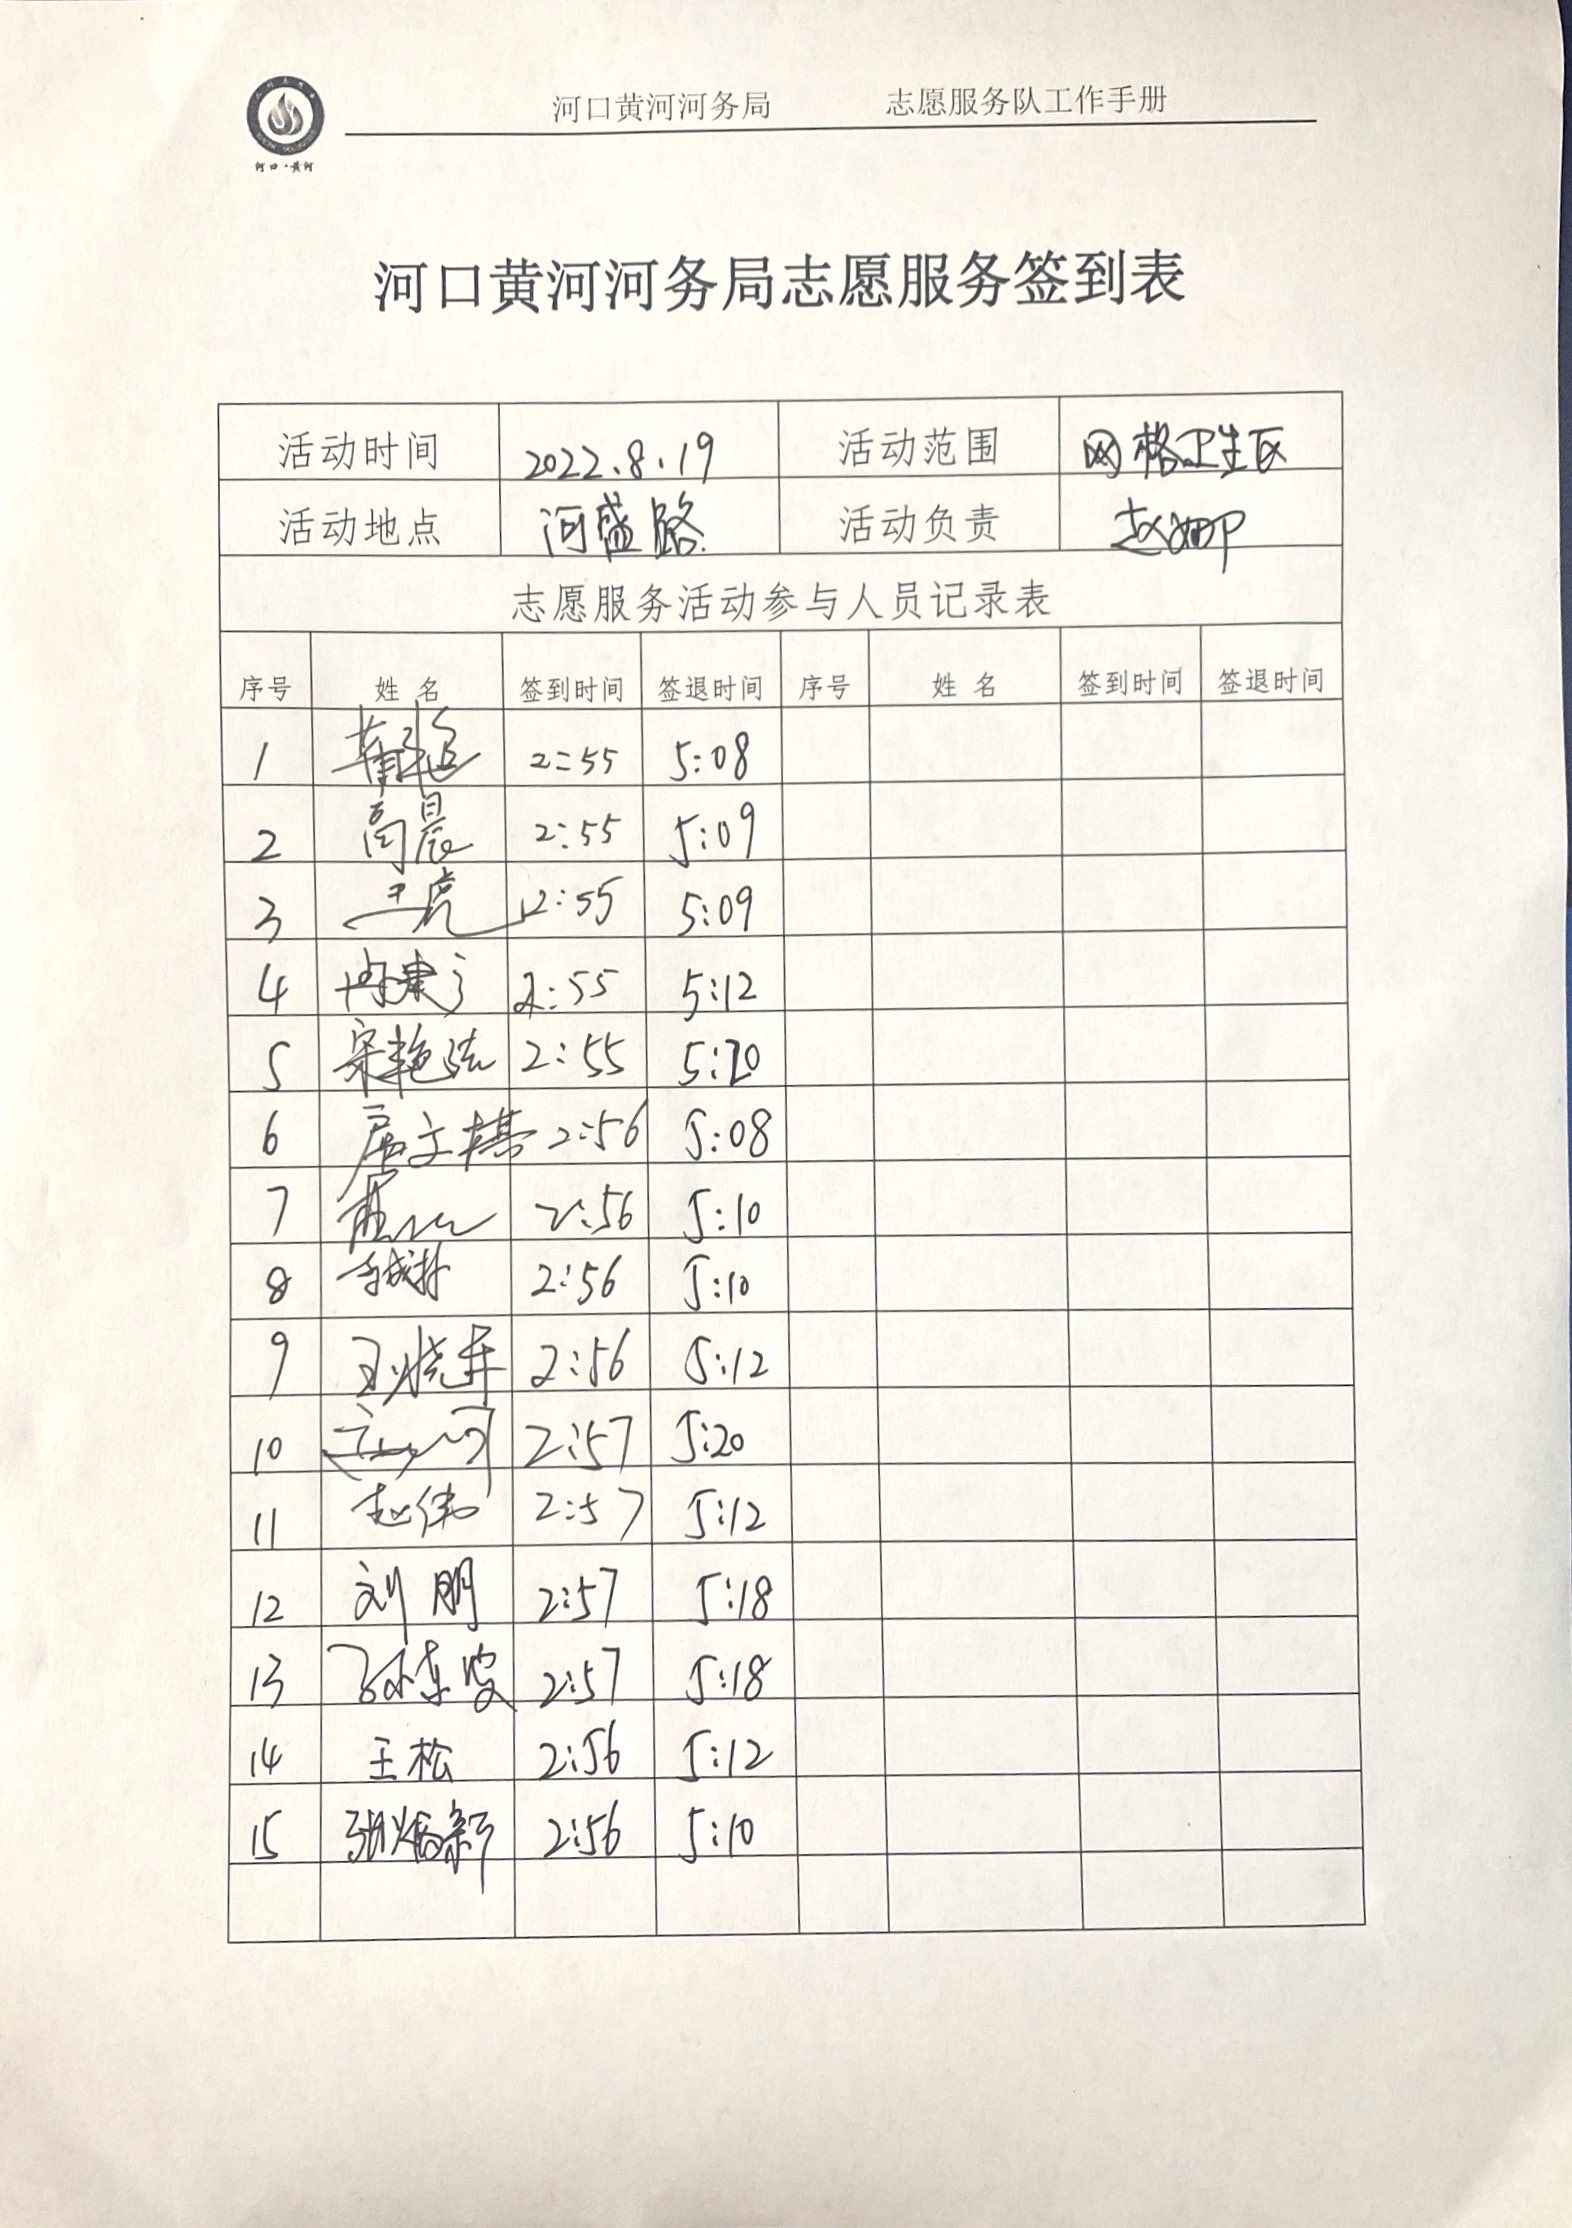 河口黄河河务局 志愿服务队工作手册
河口·黄河
河口黄河河务局志愿服务签到表
活动时间 2022.8.19 活动范围 网格卫生区
活动地点 河盛路 活动负责 赵娜
志愿服务活动参与人员记录表
序号 姓名 签到时间 签退时间 序号 姓名 签到时间 签退时间
1 2:55 5:08
2 高晨 2:55 5:09
3 2:55 5:09
4 2:55 5:12
5 宋艳 2:55 5:20
6 文棋 2:56 5:08
7 2:56 5:10
8 2:56 5:10
9 王晓东 2:56 5:12
10 2:57 5:20
11 赵伟 2:57 5:12
12 刘朋 2:57 5:18
13 孙东波 2:57 5:18
14 王松 2:56 5:12
15 张炳新 2:56 5:10